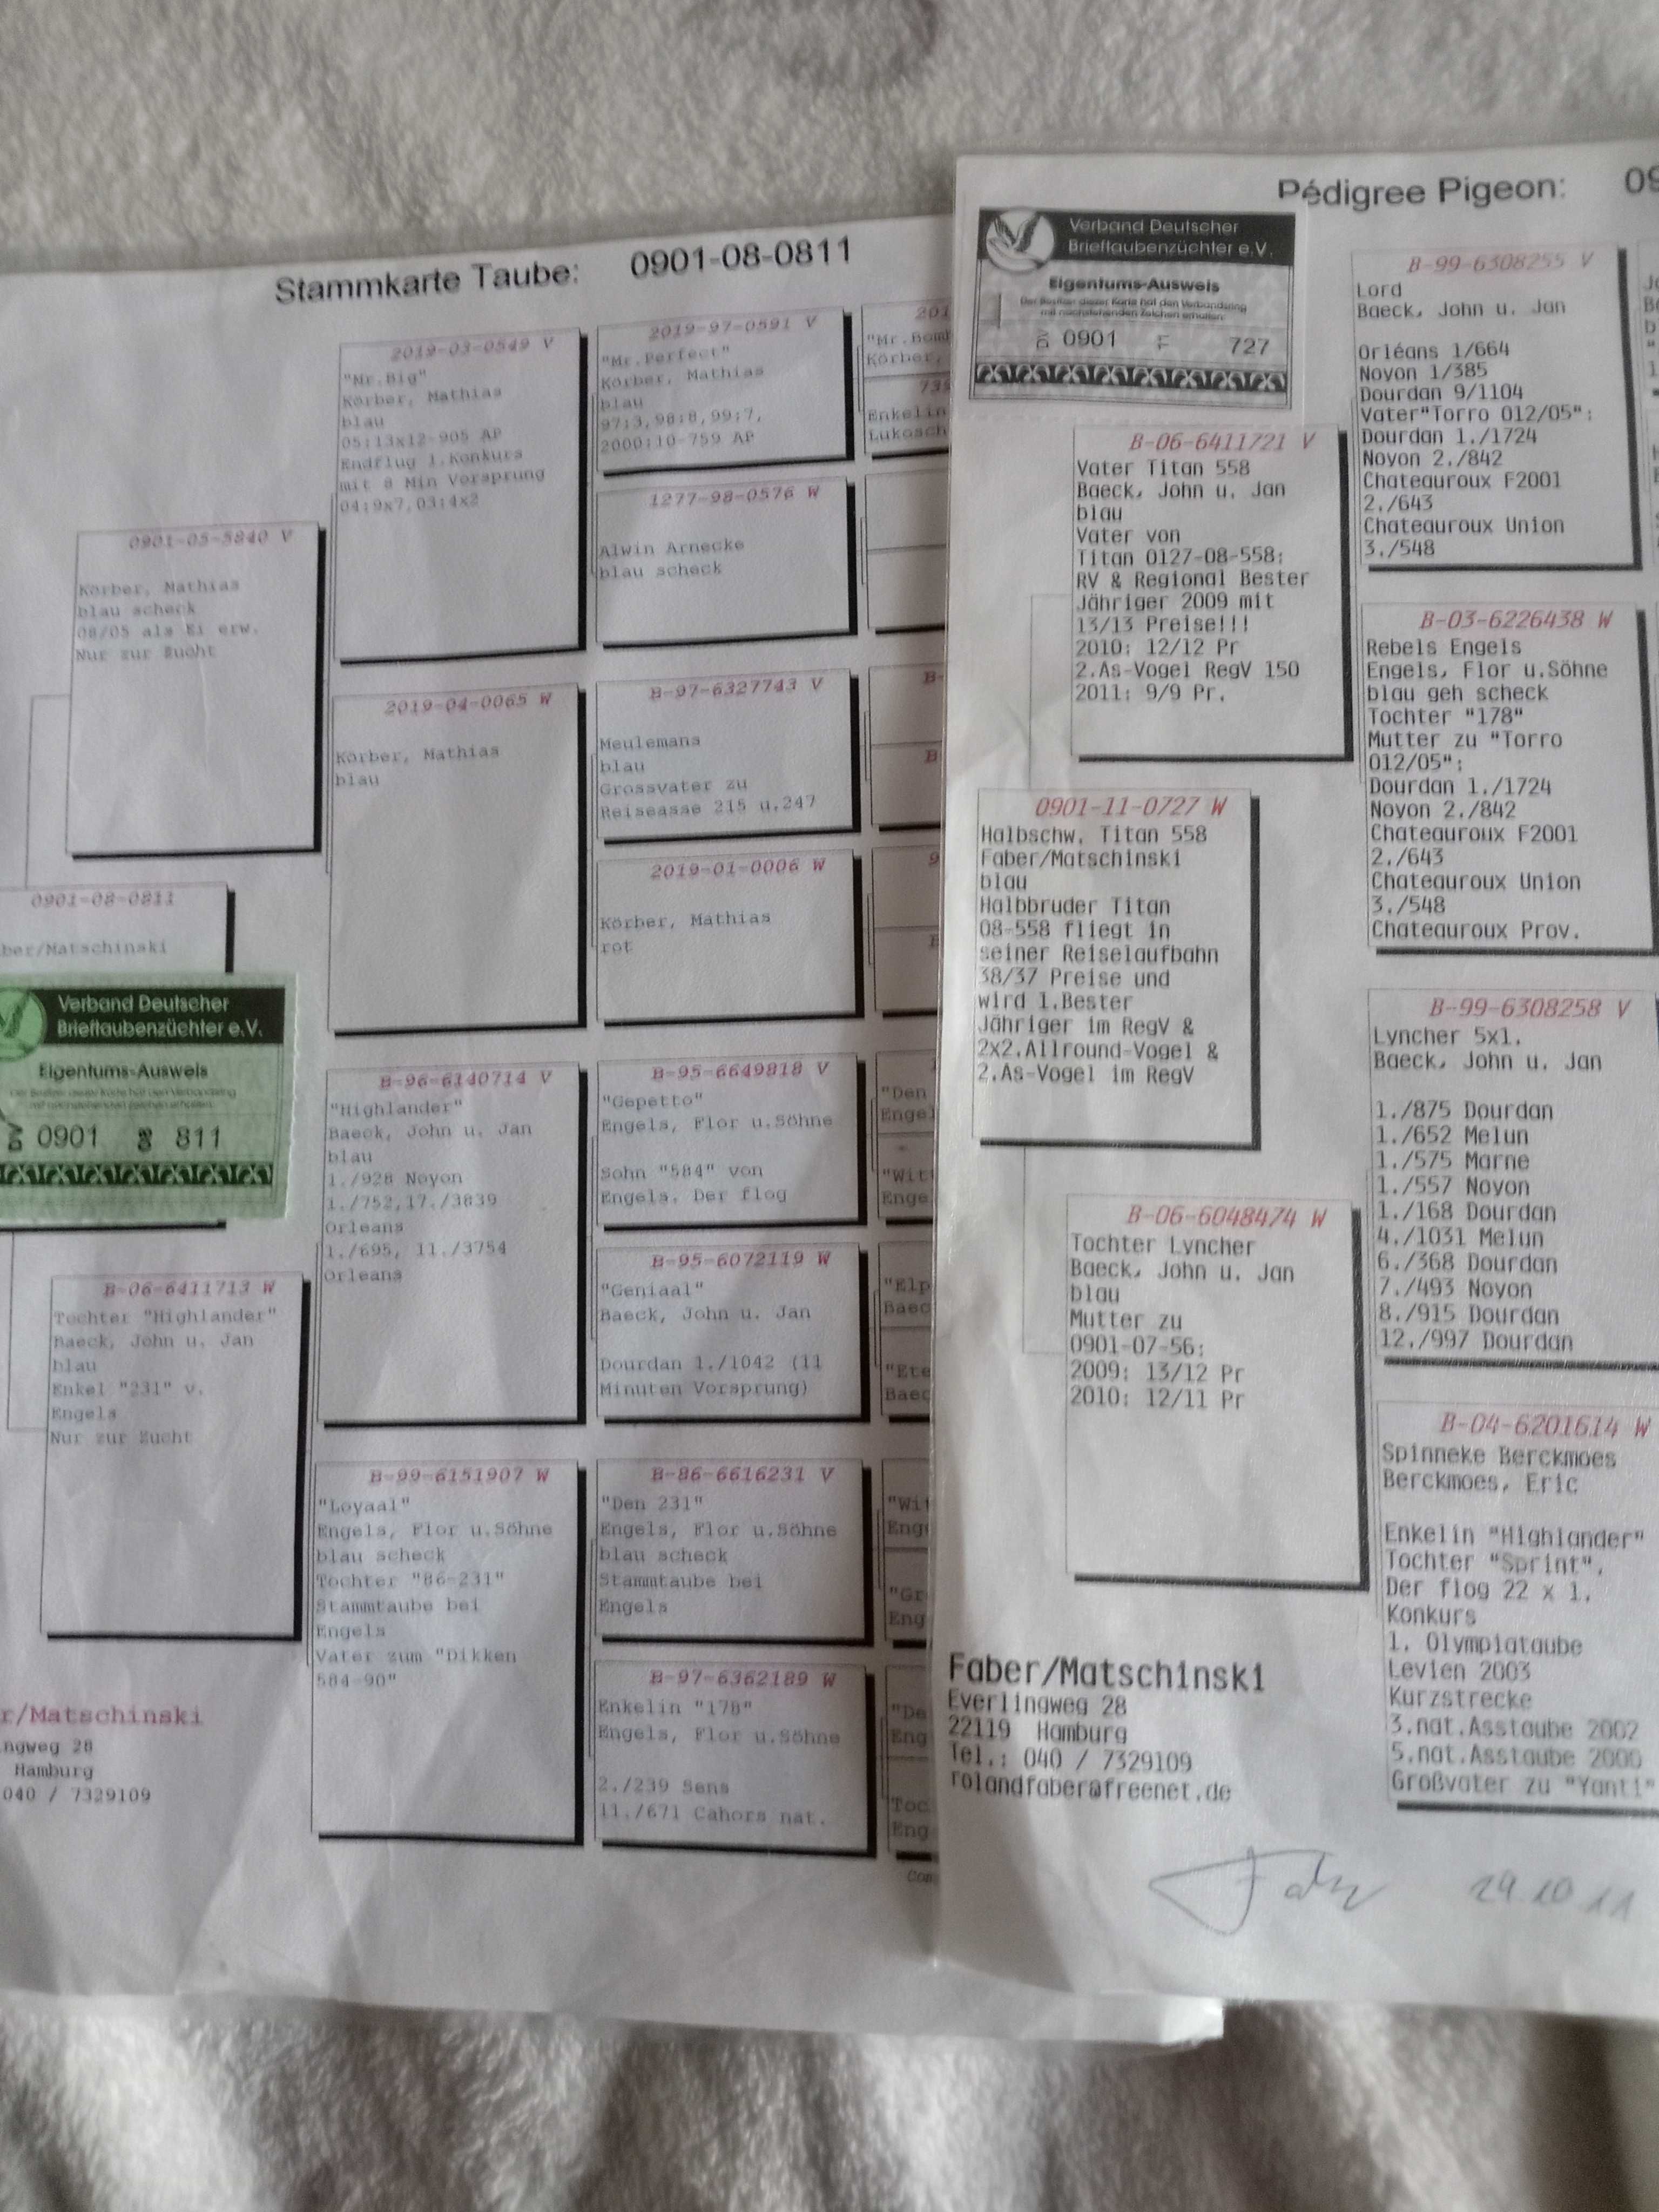 Stammkarte Taube: 0901-08-0811
0901-05-5840 V
Körber, Mathias
blau scheck
08/05 als Ei erw.
Nur zur Zucht
0901-08-0811
ber/Matschinski
Verband Deutscher
Brieftaubenzüchter e.V.
Eigentums-Ausweis
DV 0901 08 811
B-06-6411713 W
Tochter "Highlander"
Baeck, John u. Jan
blau
Enkel "231" v.
Engels
Nur zur Zucht
r/Matschinski
ngweg 28
Hamburg
040 / 7329109
2019-03-0549 V
"Mr.Big"
Körber, Mathias
blau
05:13x12-905 AP
Endflug 1.Konkurs
mit 8 Min Vorsprung
04:9x7,03:4x2
2019-04-0065 W
Körber, Mathias
blau
B-96-6140714 V
"Highlander"
Baeck, John u. Jan
blau
1./928 Noyon
1./752,17./3839
Orleans
1./695, 11./3754
Orleans
B-99-6151907 W
"Loyaal"
Engels, Flor u.Söhne
blau scheck
Tochter "86-231"
Stammtaube bei
Engels
Vater zum "Dikken
584-90"
2019-97-0591 V
"Mr.Perfect"
Körber, Mathias
blau
97:3,98:8,99:7,
2000:10-759 AP
1277-98-0576 W
Alwin Arnecke
blau scheck
B-97-6327743 V
Meulemans
blau
Grossvater zu
Reiseasse 215 u.247
2019-01-0006 W
Körber, Mathias
rot
B-95-6649818 V
"Gepetto"
Engels, Flor u.Söhne
Sohn "584" von
Engels. Der flog
B-95-6072119 W
"Geniaal"
Baeck, John u. Jan
Dourdan 1./1042 (11
Minuten Vorsprung)
B-86-6616231 V
"Den 231"
Engels, Flor u.Söhne
blau scheck
Stammtaube bei
Engels
B-97-6362189 W
Enkelin "178"
Engels, Flor u.Söhne
2./239 Sens
11./671 Cahors nat.
201
"Mr.Bomb
Körber,
735
Enkelin
Lukosch
B-
B
9
"Den
Engel
"Wit
Enge
"Elp
Baec
"Ete
Baec
"Wit
Eng
"Gr
Eng
"De
Eng
Toc
Eng
Com
Pédigree Pigeon: 09
Verband Deutscher
Brieftaubenzüchter e.V.
Eigentums-Ausweis
Der Besitzer dieser Karte hat den Verbandsring
mit nachstehenden Zeichen erhalten:
DV 0901 727
B-06-6411721 V
Vater Titan 558
Baeck, John u. Jan
blau
Vater von
Titan 0127-08-558:
RV & Regional Bester
Jähriger 2009 mit
13/13 Preise!!!
2010: 12/12 Pr
2.As-Vogel RegV 150
2011: 9/9 Pr.
0901-11-0727 W
Halbschw. Titan 558
Faber/Matschinski
blau
Halbbruder Titan
08-558 fliegt in
seiner Reiselaufbahn
38/37 Preise und
wird 1.Bester
Jähriger im RegV &
2x2.Allround-Vogel &
2.As-Vogel im RegV
B-06-6048474 W
Tochter Lyncher
Baeck, John u. Jan
blau
Mutter zu
0901-07-56:
2009: 13/12 Pr
2010: 12/11 Pr
B-99-6308255 V
Lord
Baeck, John u. Jan
Orléans 1/664
Noyon 1/385
Dourdan 9/1104
Vater"Torro 012/05":
Dourdan 1./1724
Noyon 2./842
Chateauroux F2001
2./643
Chateauroux Union
3./548
B-03-6226438 W
Rebels Engels
Engels, Flor u.Söhne
blau geh scheck
Tochter "178"
Mutter zu "Torro
012/05":
Dourdan 1./1724
Noyon 2./842
Chateauroux F2001
2./643
Chateauroux Union
3./548
Chateauroux Prov.
B-99-6308258 V
Lyncher 5x1.
Baeck, John u. Jan
1./875 Dourdan
1./652 Melun
1./575 Marne
1./557 Noyon
1./168 Dourdan
4./1031 Melun
6./368 Dourdan
7./493 Noyon
8./915 Dourdan
12./997 Dourdan
B-04-6201614 W
Spinneke Berckmoes
Berckmoes, Eric
Enkelin "Highlander"
Tochter "Sprint",
Der flog 22 x 1.
Konkurs
1. Olympiataube
Levien 2003
Kurzstrecke
3.nat.Asstaube 2002
5.nat.Asstaube 2000
Großvater zu "Yanti"
Faber/Matschinski
Everlingweg 28
22119 Hamburg
Tel.: 040 / 7329109
rolandfaber@freenet.de
Faber 29.10.11